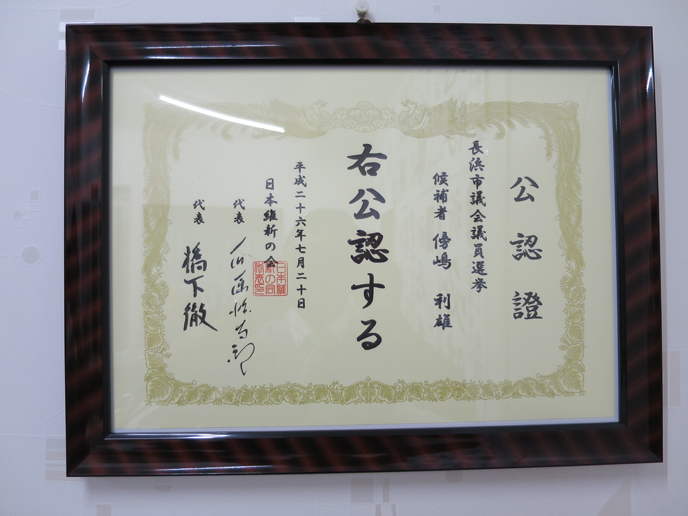 公認證
長浜市議会議員選挙
候補者 傍嶋 利雄
右公認する
平成二十六年七月二十日
日本維新の会
代表
代表 橋下徹